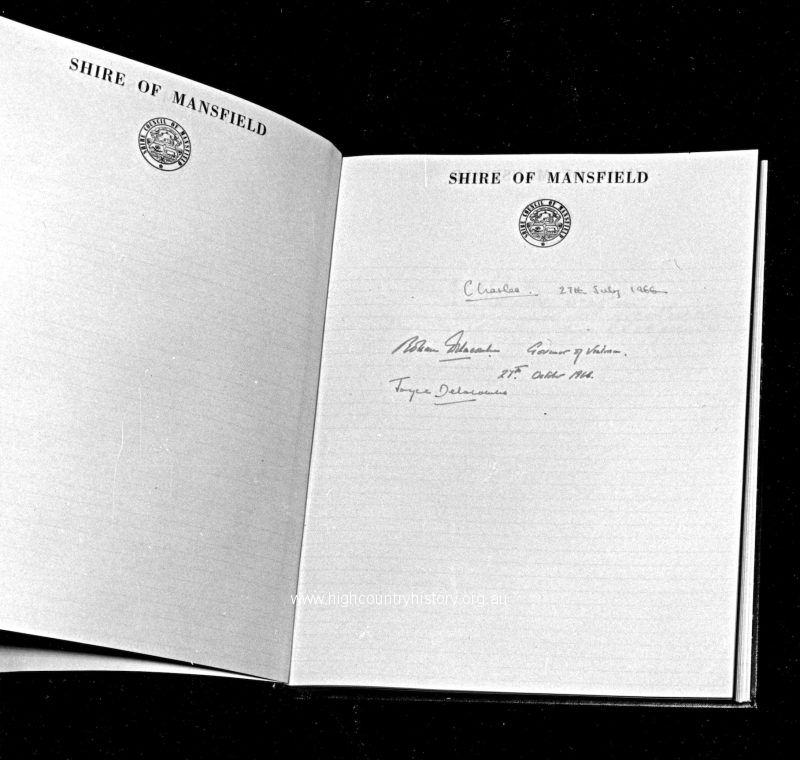 SHIRE OF MANSFIELD
SHIRE COUNCIL OF MANSFIELD
SHIRE OF MANSFIELD
SHIRE COUNCIL OF MANSFIELD
Charles. 27th July 1966
Rohan Delacombe Governor of Victoria.
27th October 1966.
Joyce Delacombe
www.highcountryhistory.org.au